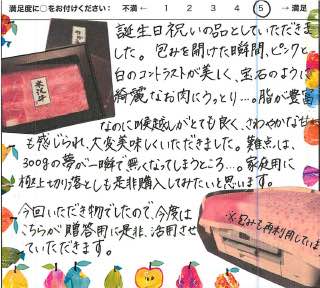 満足度に○をお付けください: 不満 ← 1 2 3 4 5 → 満足
誕生日祝いの品としていただきま
した。包みを開けた瞬間、ピンクと
白のコントラストが美しく、宝石のように
綺麗なお肉にうっとり…。脂が豊富
なのに喉越しがとても良く、さわやかな甘
も感じられ、大変美味しくいただきました。難点は、
300gの夢が一瞬で無くなってしまうところ…。家庭用に
極上切り落としも是非購入してみたいと思います。
今回いただき物でしたので、今度は
こちらが贈答用に是非、活用させ
ていただきます。
※包みも再利用していま
米沢牛